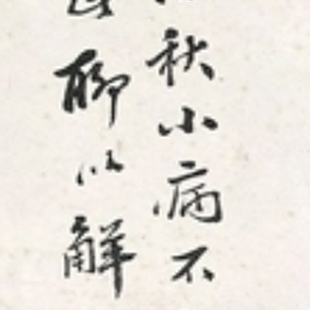 秋小病不
聊以解